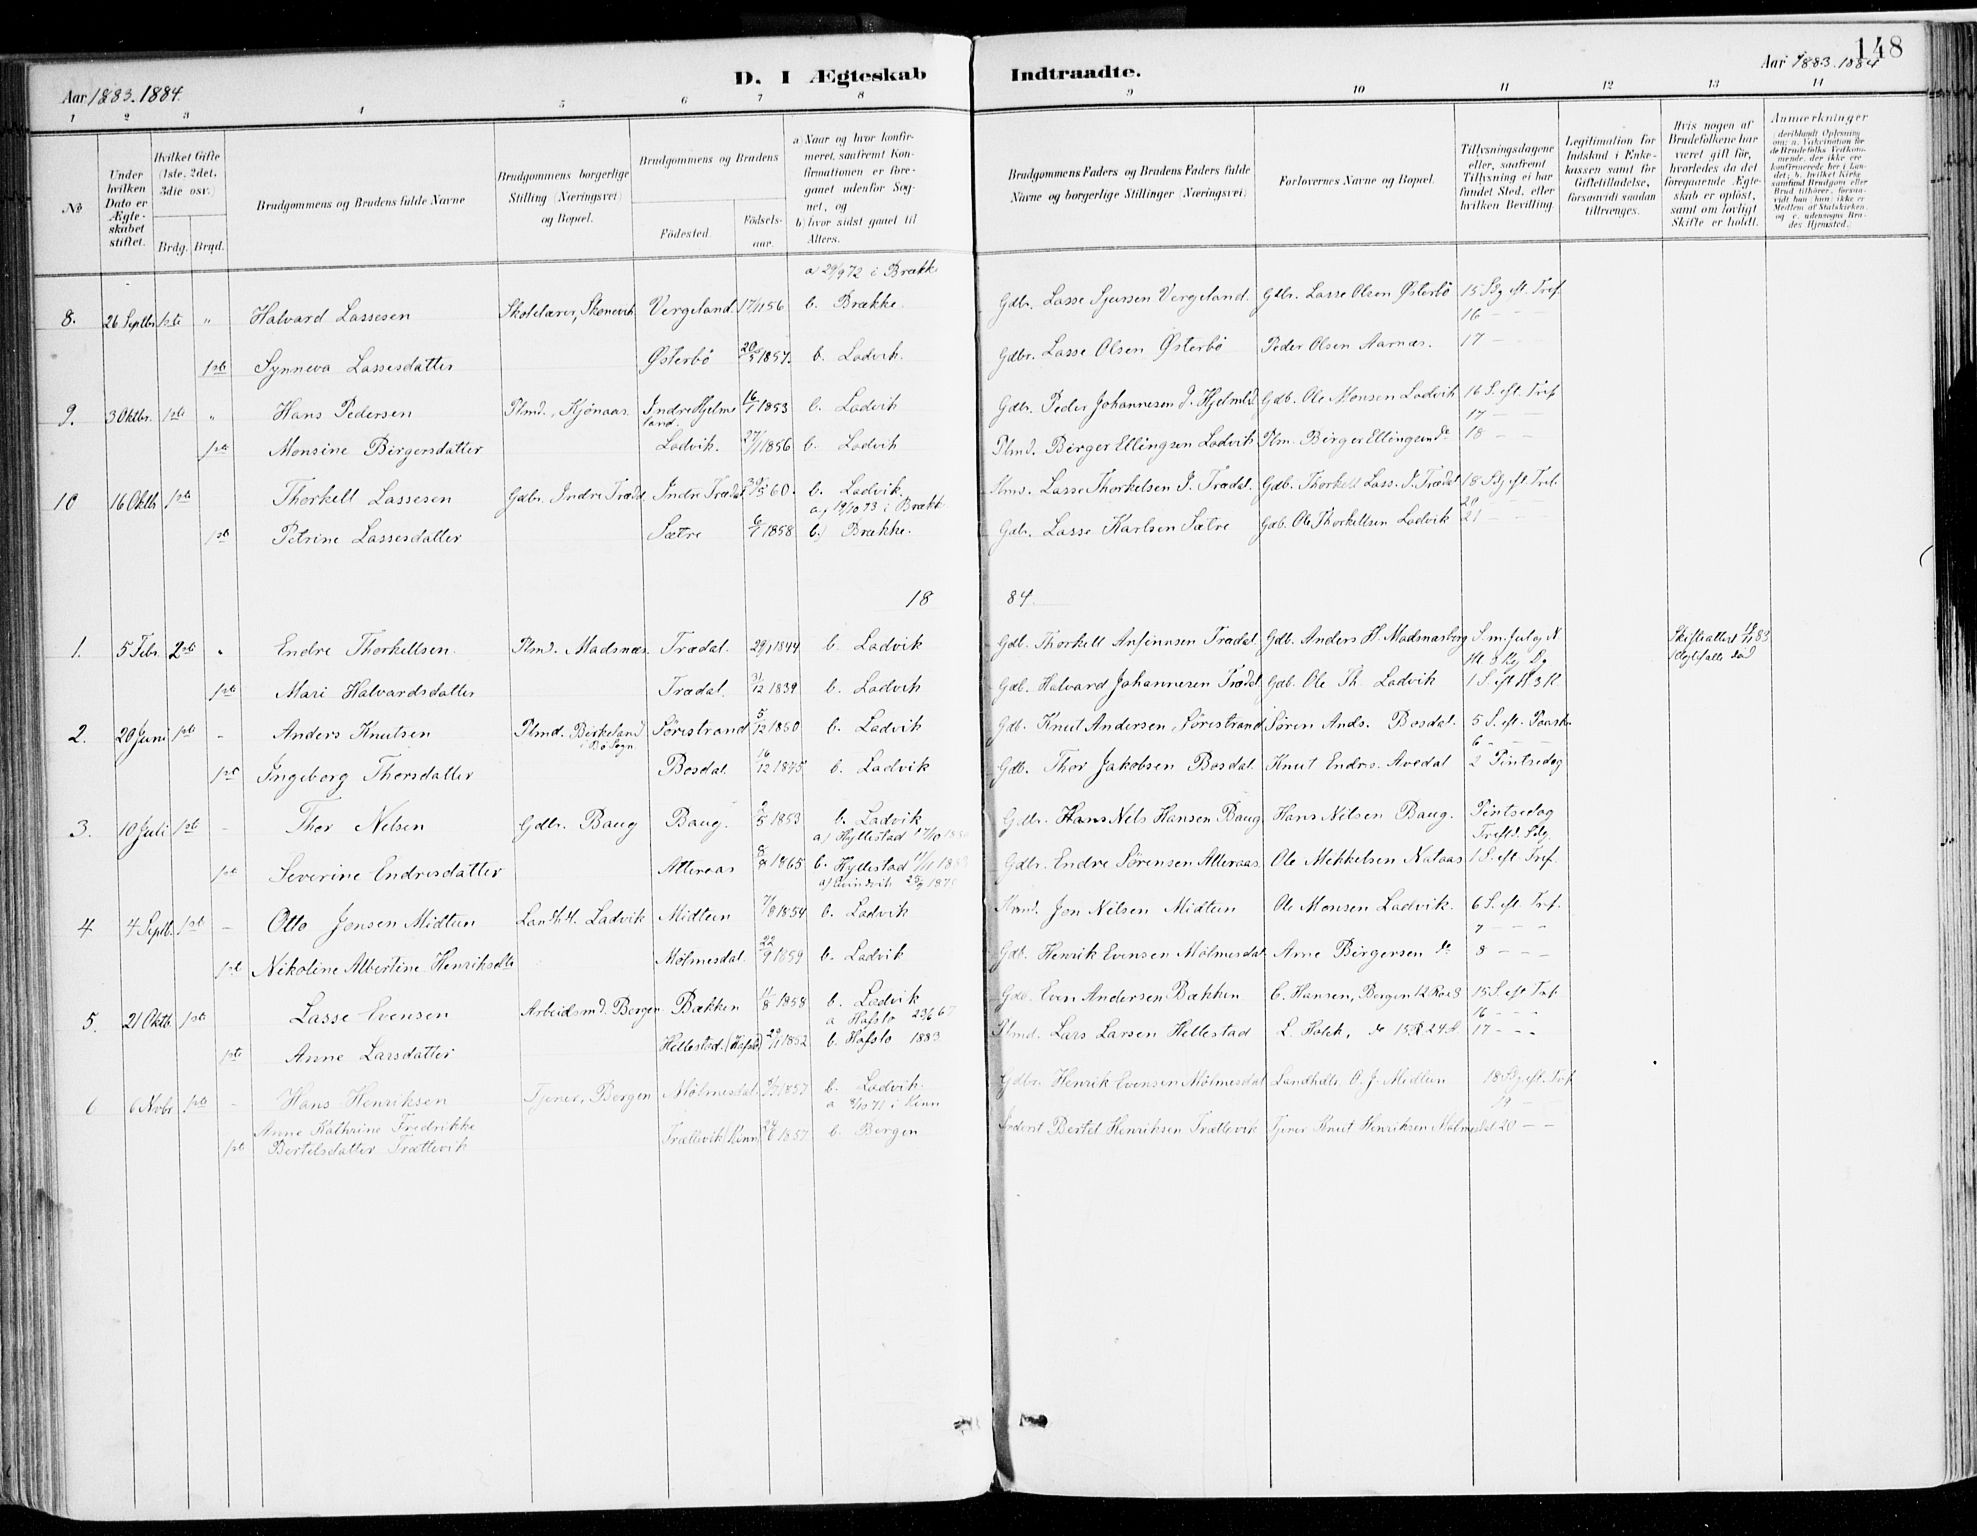 148
D. I Ægteskab Indtraadte.
Aar 1883. 1884.
Aar 1883. 1884
1 2 3 4 5 6 7 8 9 10 11 12 13 14
№
Under hvilken Dato er Ægteskabet stiftet.
Hvilket Gifte (1ste, 2det, 3die osv.)
Brdg. Brud.
Brudgommens og Brudens fulde Navne
Brudgommens borgerlige Stilling (Næringsvei) og Bopæl.
Brudgommens og Brudens
Fødested. Fødselsaar.
a) Naar og hvor konfirmeret, saafremt Konfirmationen er foregaaet udenfor Sognet, og
b) hvor sidst gaaet til Alters.
Brudgommens Faders og Brudens Faders fulde Navne og borgerlige Stillinger (Næringsvei)
Forlovernes Navne og Bopæl.
Tillysningsdagene eller, saafremt Tillysning ei har fundet Sted, efter hvilken Bevilling
Legitimation for Indskud i Enkekassen samt for Giftetilladelse, forsaavidt saadan tiltrænges.
Hvis nogen af Brudefolkene har været gift før, hvorledes da det foregaaende Ægteskab er opløst, samt om lovligt Skifte er holdt.
Anmærkninger
a) 29/9 72 i Brække
8. 26 Septbr 1ste " Halvard Lassesen Skolelærer, Skonevik Vergeland 17/11 56 b. Brække. Gdbr. Lasse Sjursen Vergeland. Gdbr. Lasse Olsen Østerbø 15 Sg eft. Tref.
16 - - -
1ste Synneva Lassesdatter Østerbø 20/5 1857. b. Ladvik. Gdbr. Lasse Olsen Østerbø Peder Olsen Aarnæs. 17 - - -
9. 3 Oktbr. 1ste " Hans Pedersen Plmd., Kjønaas. Indre Hjelmeland. 16/1 1853 b. Ladvik Gdbr. Peder Johannesen I. Hjelmld. Gdb. Ole Monsen Ladvik 16 S. eft. Tref
17 - - -
1ste Monsine Birgersdatter Ladvik. 27/1 1856 b. Ladvik Plmd. Birger Ellingsen Ladvik Plm. Birger Ellingsen do 18 - - -
10 16 Oktbr 1ste Thorkell Lassesen Gdbr. Indre Trædal Indre Trædal 30/5 60. b. Ladvik. Lasse Thorkelsen I. Trædal. Gdb. Thorkell Lass. I. Trædal 18 Sg eft Tref.
a) 19/10 73 i Brække 20
1ste Petrine Lassesdatter Sætre 6/1 1858 b) Brække. Gdbr. Lasse Karlsen Sætre Gdb. Ole Thorkellsen Ladvik 21 - - -
18 84.
1. 5 Febr. 2det " Endre Thorkellsen. Plmd. Madsnæs. Trædal. 29/1 1844 b. Ladvik Gdb. Thorkell Anfinnsen Trædal Gdb. Anders H. Madsnasberg S. m. Jul og N Skifteattest 18/11 83
1ste Mari Halvardsdatter Trædal. 31/12 1839 b. Ladvik Gdb. Halvard Johannesen Trædal Gdb. Ole Th. Ladvik 1 S. eft H 3 K
2. 20 Juni 1ste - Anders Knutsen Plmd. Birkeland i Bø Sogn Sørestrand 5/12 1850 b. Ladvik Gdb. Knut Andersen, Sørestrand Søren Ands. Bosdal. 5 S. eft. Paaske
6 - - -
1ste Ingeborg Thorsdatter Bosdal. 16/12 1845 b. Ladvik Gdb. Thor Jakobsen Bosdal. Knut Endres. Avedal 2 Pintsedag
3. 10 Juli 1ste - Thor Nelsen Gdbr. Baug Baug. 2/5 1853 b. Ladvik Gdbr. Nels Hansen Baug Hans Nilsen Baug. Pintsedag
a) Hyllestad 17/10 Trefd. Sdg.
1ste Severine Endresdatter Atteraas 1865 b. Hyllestad Gdbr. Endre Sørensen Atteraas Ole Mekkelsen Nataas 1 S. eft Tref.
a) Evindvik
4. 4 Septb. 1ste - Otto Jonsen Midtun Landh. Ladvik Midtun 7/8 1854 b. Ladvik Plmd. Jon Nilsen Midtun Ole Monsen Ladvik. 6 S. eft. Tref.
7 - - -
1ste Nikoline Albertine Henriksdtr Mølmesdal. 22/9 1859 b. Ladvik Gdb. Henrik Evensen Mølmesdal Arne Birgersen do 8 - - -
5. 21 Oktb 1ste Lasse Evensen Arbeidsmd. Bergen Bækken 11/8 1858 b. Ladvik Gdb. Even Andersen Bækken C. Hansen, Bergen 12 Rode 8 15 S. eft Tref.
a Hafslo 23/6 67 16 - - -
1ste Anne Larsdatter Hillestad (Hafslo) 29/11 1852 b. Hafslo 1883 Plmd. Lars Larsen Hillestad L. Holck, do 15 R 24 17 - - -
6 6 Novbr 1ste - Hans Henriksen Tjener, Bergen Mølmesdal 1857 b. Ladvik. Gdbr Henrik Evensen Mølmesdal Landhdlr. O. J. Midtun 18 Sg eft. Tref
a 8/10 71 i Kinn 19 - -
1ste Anne Kathrine Fredrikke Bertelsdatter Trættevik Trættevik Kinn 1857. b. Bergen Inderst Bertel Henriksen Trættevik Tjener Knut Henriksen Mølmesdal 20 - -